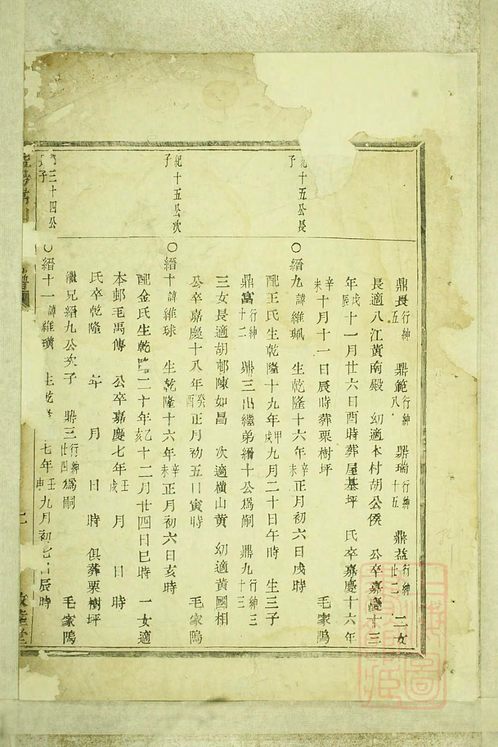 鼎長行紳五 鼎範行紳八 鼎瑞行紳十五 鼎益行紳廿二 二女
長適八江黃南殿 幼適本村胡公俟 公卒嘉慶十三
年戊辰十一月廿六日酉時葬屋基坪 氏卒嘉慶十六年
辛未十月十一日辰時葬栗樹坪 毛家塢
紀十五公長子
〇縉九諱維珮 生乾隆十六年辛未正月初六日戌時
配王氏生乾隆十九年甲戌九月二十日午時 生三子
鼎富行紳二 鼎三出繼弟縉十公爲嗣 鼎九行紳三十三
三女長適胡邨陳如昌 次適橫山黃 幼適黃國相
公卒嘉慶十八年癸酉正月初五日寅時 毛家塢
紀十五公次子
〇縉十諱維球 生乾隆十六年辛未正月初六日亥時
配金氏生乾隆二十年乙亥十二月廿四日巳時 一女適
本邨毛禹傳 公卒嘉慶七年壬戌 月 日 時
氏卒乾隆 年 月 日 時 俱葬栗樹坪
繼兄縉九公次子 鼎三行紳廿四爲嗣 毛家塢
三十四公子
〇縉十一諱維璜 生乾 七年 九月初七日辰時